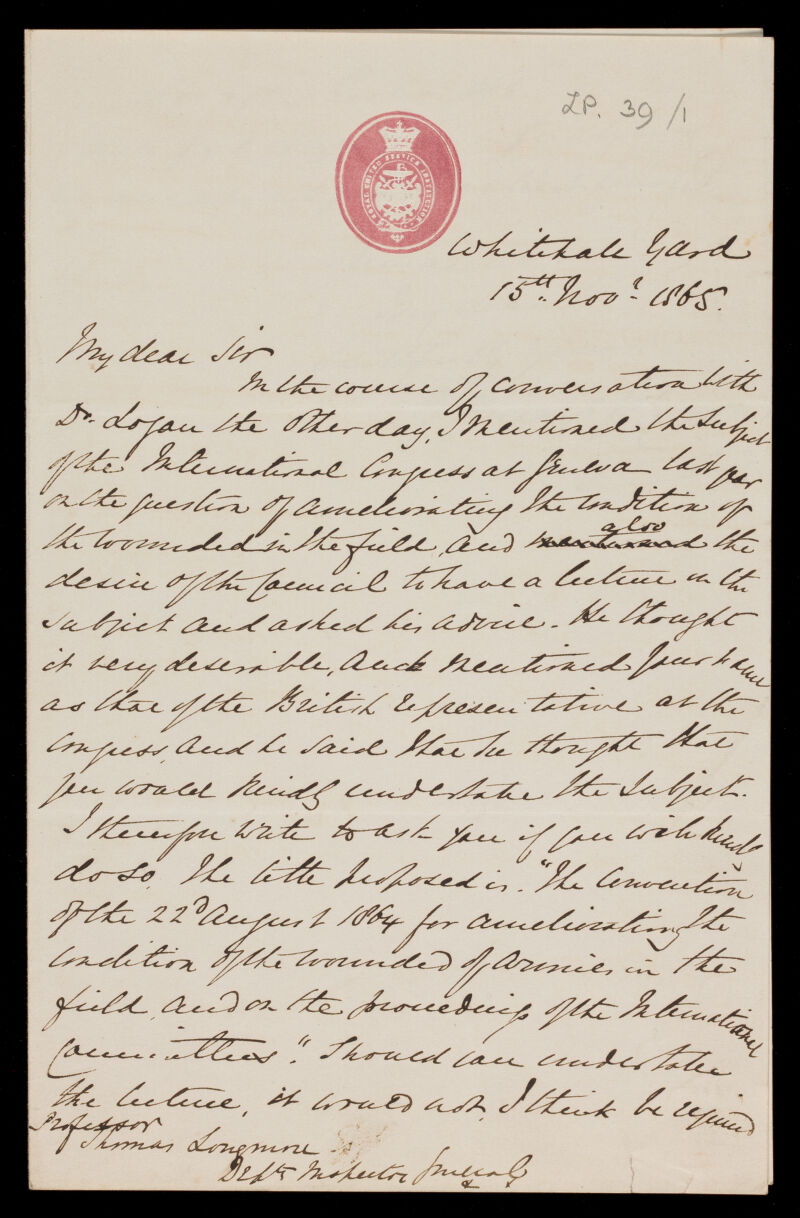 LP. 39/1
ROYAL UNITED SERVICE INSTITUTION
Whitehall Yard
15th. Novr. 1865.
My dear Sir
In the course of conversation with
Dr. Logan the other day, I mentioned the subject
of the International Congress at Geneva last year
on the question of ameliorating the condition of
the wounded in the field, and also the
desire of the Council to have a lecture on the
subject and asked his advice. He thought
it very desirable, and mentioned your name
as that of the British representative at the
Congress, and he said that he thought that
you would kindly undertake the subject.
I therefore write to ask you if you will kindly
do so. The title proposed is. "The Convention
of the 22d August 1864 for ameliorating the
condition of the wounded of armies in the
field, and on the proceedings of the International
Committees". Should you undertake
the lecture, it would not, I think be required
Professor
Thomas Longmore
Depty Inspector General